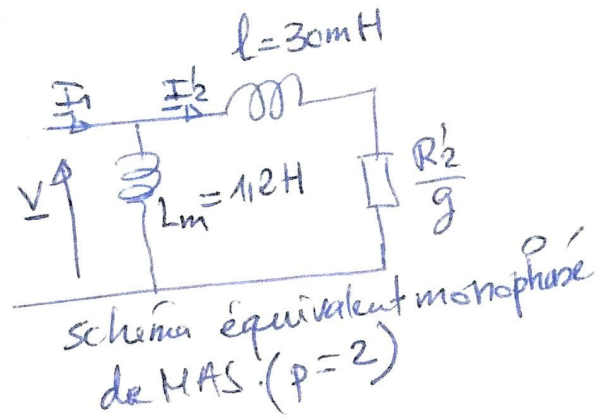 l=30mH
I1
I'2
V
Lm=1,2H
R'2
g
schéma équivalent monophasé
de MAS. (p=2)